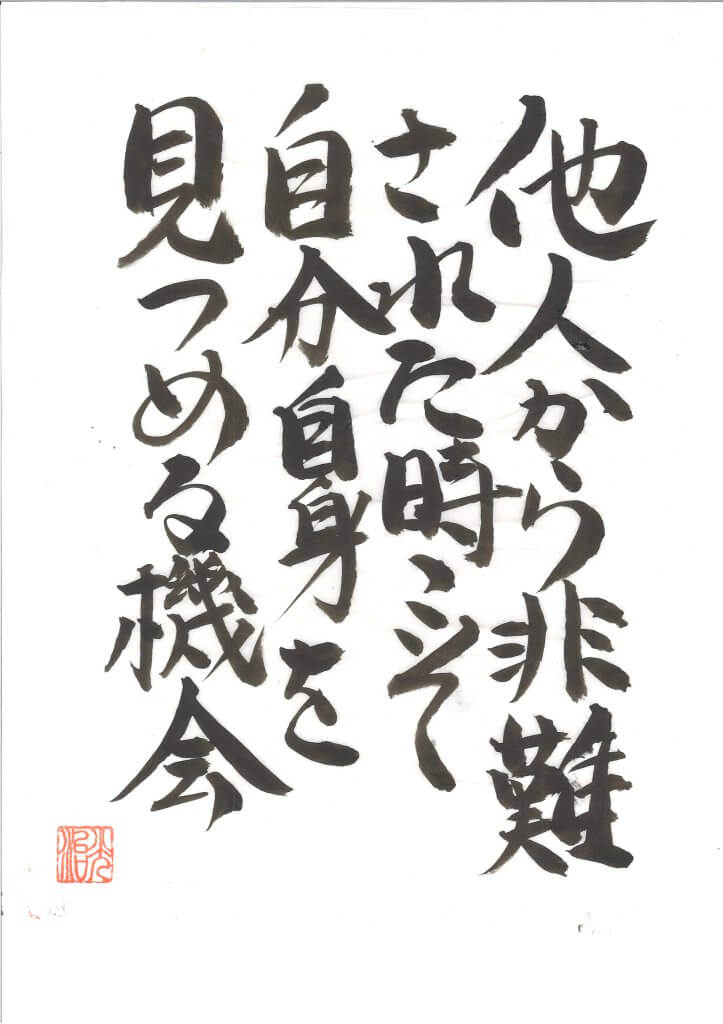 他人から非難
された時こそ
自分自身を
見つめる機会